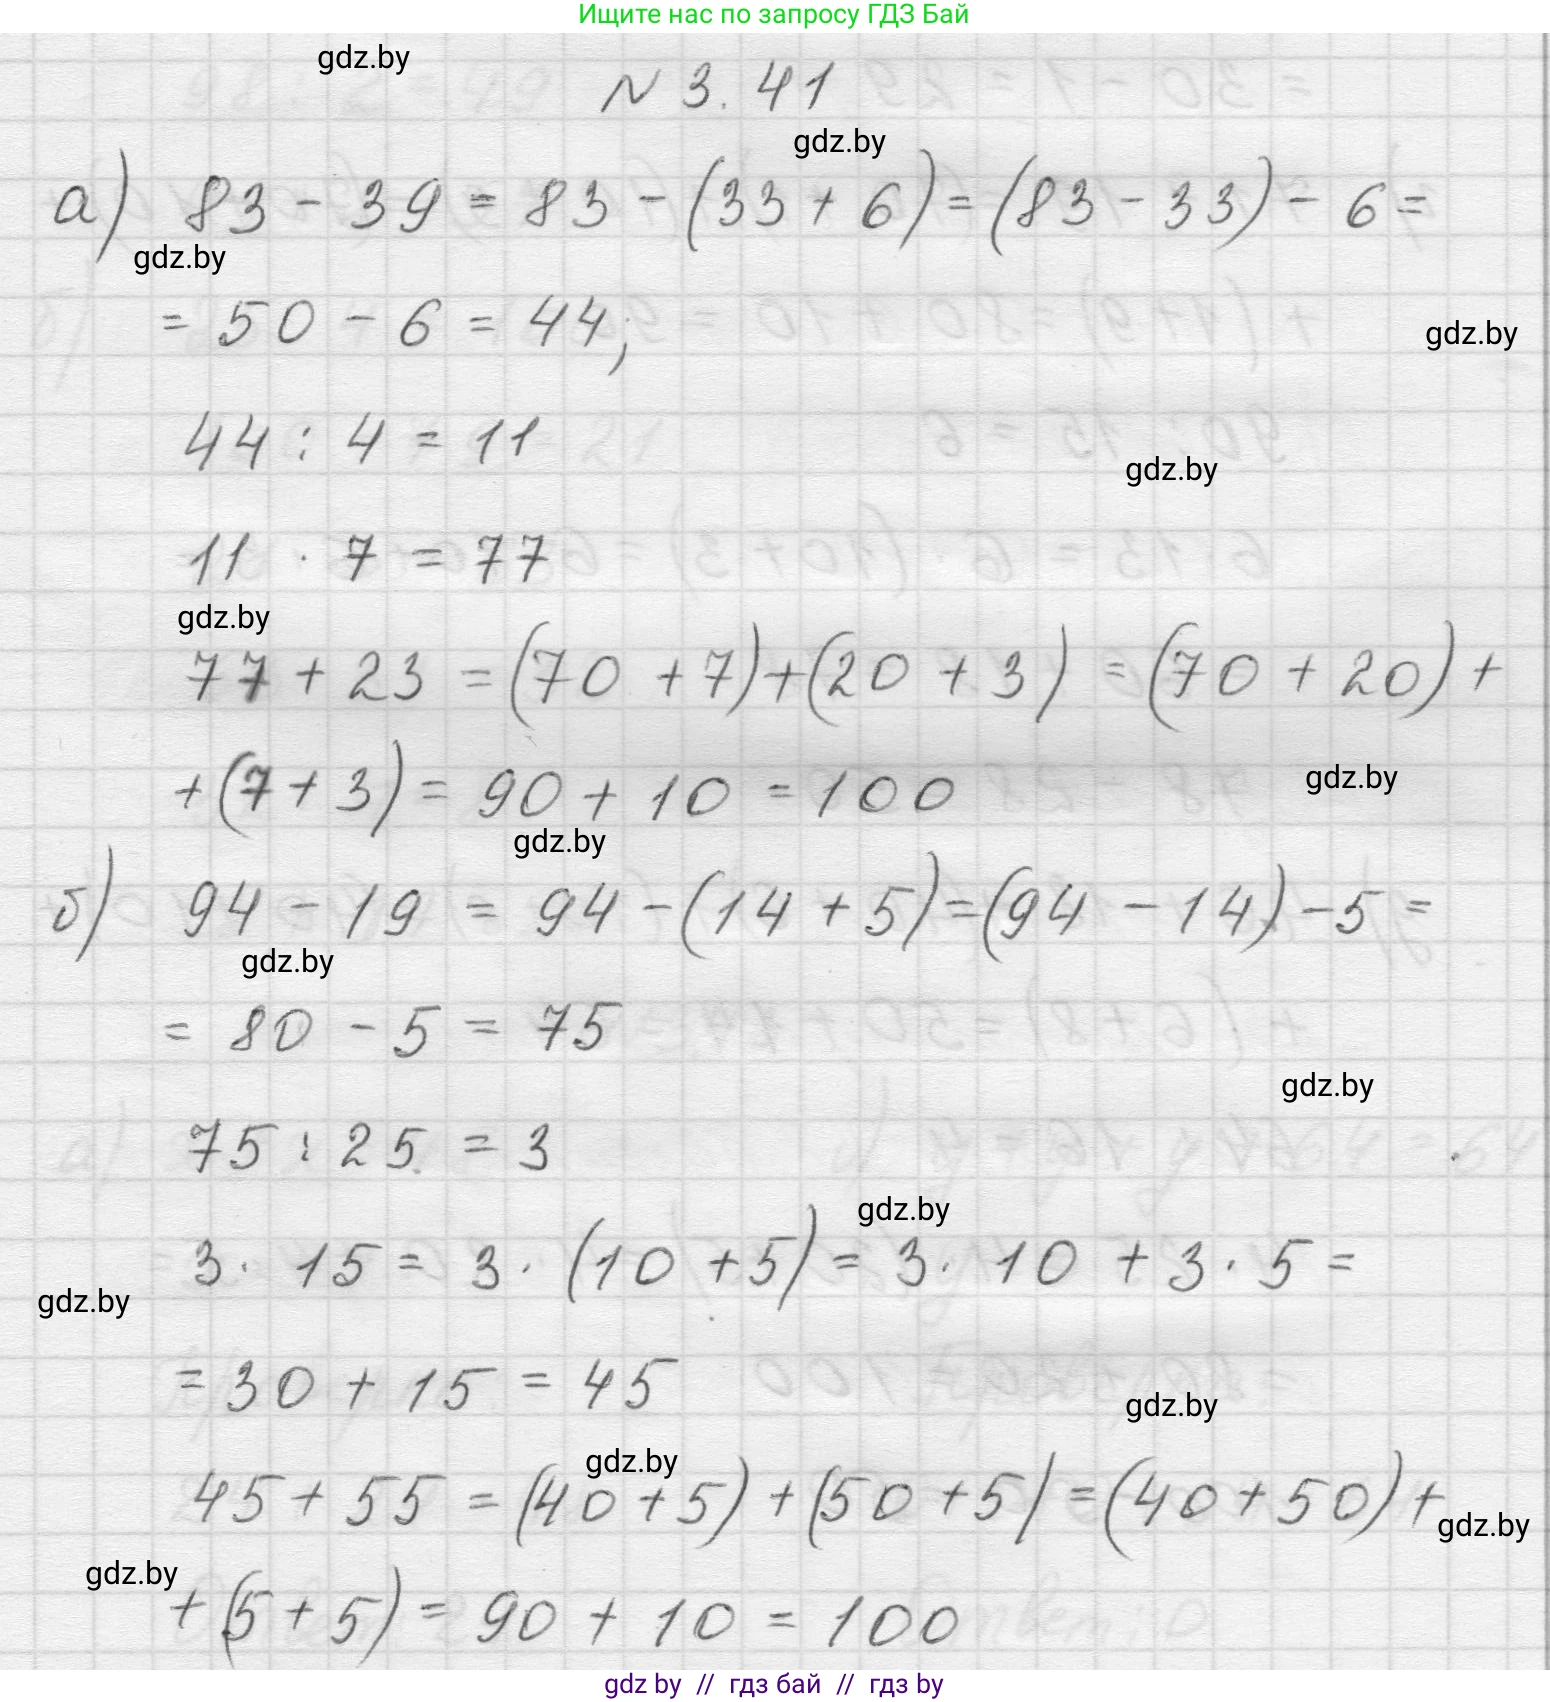 Ищите нас по запросу ГДЗ Бай
gdz.by
N 3.41
gdz.by
а) 83 - 39 = 83 - (33 + 6) = (83 - 33) - 6 =
gdz.by
= 50 - 6 = 44;
gdz.by
44 : 4 = 11
gdz.by
11 · 7 = 77
gdz.by
77 + 23 = (70 + 7) + (20 + 3) = (70 + 20) +
+ (7 + 3) = 90 + 10 = 100
gdz.by
gdz.by
б) 94 - 19 = 94 - (14 + 5) = (94 - 14) - 5 =
gdz.by
= 80 - 5 = 75
gdz.by
75 : 25 = 3
gdz.by
3 · 15 = 3 · (10 + 5) = 3 · 10 + 3 · 5 =
gdz.by
= 30 + 15 = 45
gdz.by
gdz.by
45 + 55 = (40 + 5) + (50 + 5) = (40 + 50) +
gdz.by
gdz.by
+ (5 + 5) = 90 + 10 = 100
gdz by // гдз бай // гдз by